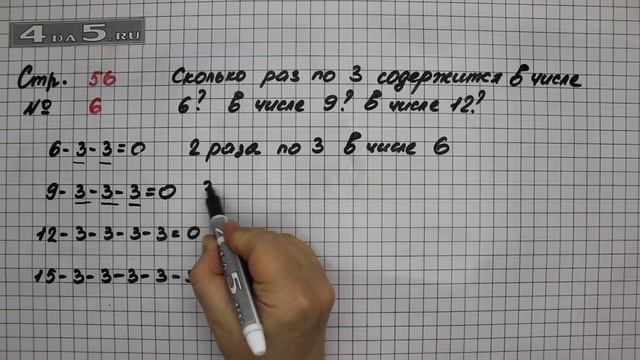 4DA5.RU
Стр. 56 Сколько раз по 3 содержится в числе
№ 6 6? в числе 9? в числе 12?
6-3-3=0 2 раза по 3 в числе 6
9-3-3-3=0
12-3-3-3-3=0
15-3-3-3-3-